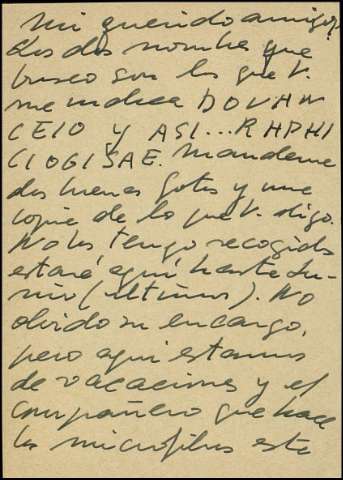 Mi querido amigo:
Los dos nombres que
busco son los que V.
me indica DOVAN
CEIO y ASI...RHPHI
CIOGISAE. Mandeme
dos buenas fotos y una
copia de lo que V. diga.
No los tengo recogidos
estaré aquí hasta Ju-
nio (últimos). No
olvido su encargo,
pero aqui estamos
de vacaciones y el
compañero que hace
los microfilms está